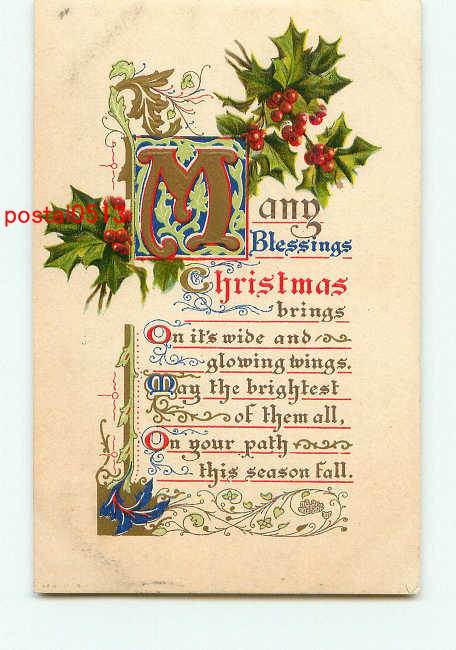 Many
Blessings
Christmas
brings
On it's wide and
glowing wings.
May the brightest
of them all,
On your path
this season fall.
postal0513